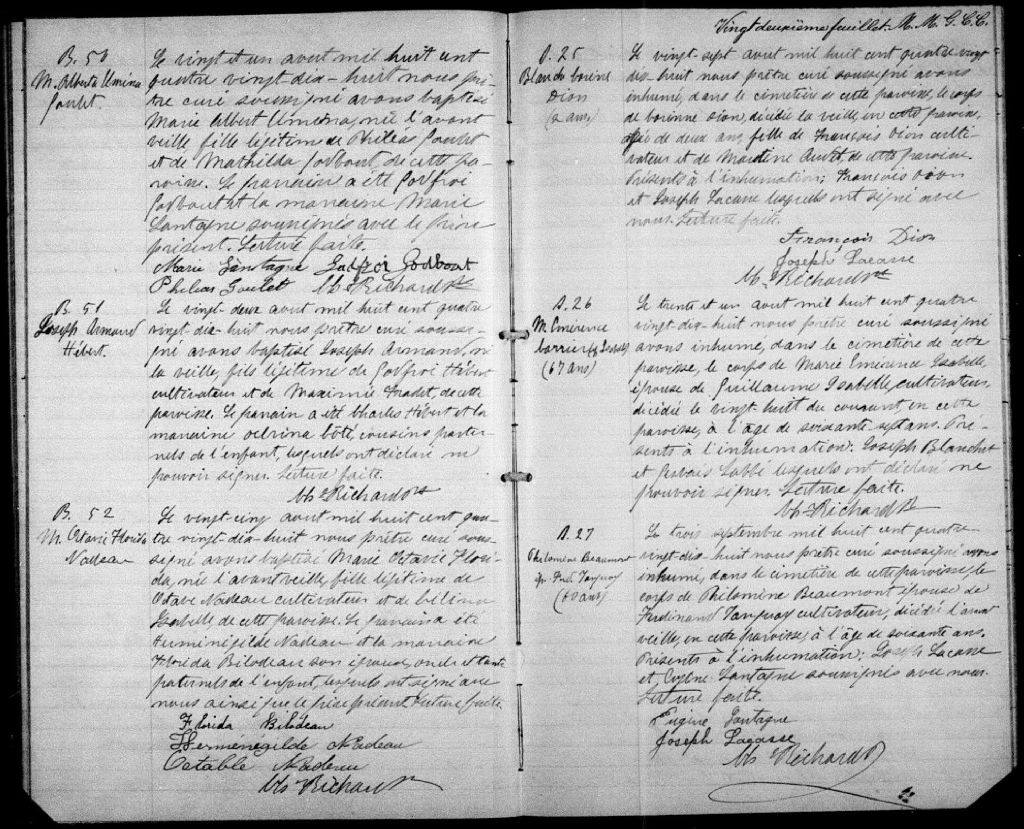 B. 50
M. Alberta Elmina
Goulet
Le vingt et un aout mil huit cent
quatre vingt dix-huit nous prê-
tre curé soussigné avons baptisé
Marie Albert née l'avant
veille fille légitime de Philéas Goulet
et de Mathilda Godbout, de cette pa-
roisse. Le parrain a été Godfroi
Godbout et la marraine Marie
Lantagne soussignés avec le père
présent. Lecture faite.
Marie Lantagne Godfroi Godbout
Philias Goulet Chs Richard Ptr
B. 51
Joseph Armand
Hébert.
Le vingt-deux aout mil huit cent quatre
vingt, dix-huit nous prêtre curé soussi-
gné avons baptisé Joseph Armand, né
la veille, fils légitime de Godfroi Hébert
cultivateur et de Maximie Fradet, de cette
paroisse. Le parrain a été Charles Hébert et la
marraine Côté, cousins pater-
nels de l'enfant, lesquels ont déclaré ne
pouvoir signer. Lecture faite.
Chs Richard Ptr
B. 52
M. Octavie Florida
Nadeau
Le vingt-cinq aout mil huit cent qua-
tre vingt-dix-huit nous prêtre curé sous-
signé avons baptisé Marie Octavie Flori-
da, née l'avant veille, fille légitime de
Octave Nadeau cultivateur et de Célina
Isabelle de cette paroisse. Le parrain a été
Herménégilde Nadeau et la marraine
Florida Bilodeau son épouse, oncle et tante
paternels de l'enfant, lesquels ont signé avec
nous ainsi que le père présent. Lecture faite.
Florida Bilodeau
Herménégilde Nadeau
Octable Nadeau
Chs Richard Ptr
Vingt deuxième feuillet. M. M. G. C. C.
S. 25
Dion
(2 ans)
Le vingt-sept aout mil huit cent quatre vingt
dix-huit nous prêtre curé soussigné avons
inhumé, dans le cimetière de cette paroisse, le corps
de Corinne Dion, décédée la veille, en cette paroisse,
âgée de deux ans, fille de François Dion culti-
vateur et de Martine Audet, de cette paroisse.
Présents à l'inhumation; François Dion
et Joseph Lacasse lesquels ont signé avec
nous. Lecture faite.
François Dion
Joseph Lacasse
Chs Richard Ptr
S. 26
M. Emérence
(67 ans)
Le trente et un aout mil huit cent quatre
vingt dix-huit nous prêtre curé soussigné
avons inhumé, dans le cimetière de cette
paroisse, le corps de Marie Emérence Isabelle,
épouse de Guillaume Isabelle, cultivateur,
décédée le vingt-huit du courant, en cette
paroisse, à l'âge de soixante-sept ans. Pré-
sents à l'inhumation: Joseph Blanchet
et Gervais Labbé lesquels ont déclaré ne
pouvoir signer. Lecture faite.
Chs Richard Ptr
S. 27
Philomène Beaumont
ép. Ferd. Tanguay
(60 ans)
Le trois septembre mil huit cent quatre-
vingt dix-huit nous prêtre curé soussigné avons
inhumé, dans le cimetière de cette paroisse, le
corps de Philomène Beaumont épouse de
Ferdinand Tanguay cultivateur, décédée l'avant
veille, en cette paroisse, à l'âge de soixante ans.
Présents à l'inhumation: Joseph Lacasse
et Eugène Lantagne soussignés avec nous.
Lecture faite.
Eugène Lantagne
Joseph Lacasse
Chs Richard Ptr